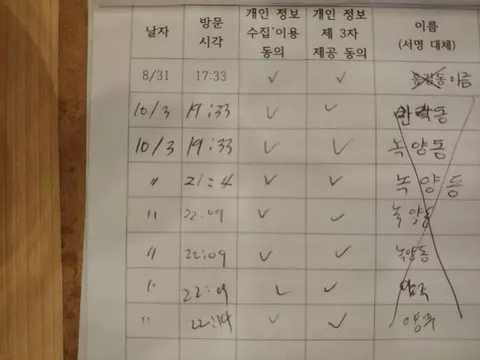 날자 방문 시각 개인 정보 수집·이용 동의 개인 정보 제 3자 제공 동의 이름 (서명 대체)
8/31 17:33 ✓ ✓ 이름
10/3 19:33 ✓ ✓
10/3 19:33 ✓ ✓ 녹양동
〃 21:4 ✓ ✓ 녹양동
〃 22:09 ✓ ✓ 녹양동
〃 22:09 ✓ ✓ 녹양동
〃 22:09 ✓ ✓
〃 22:14 ✓ ✓